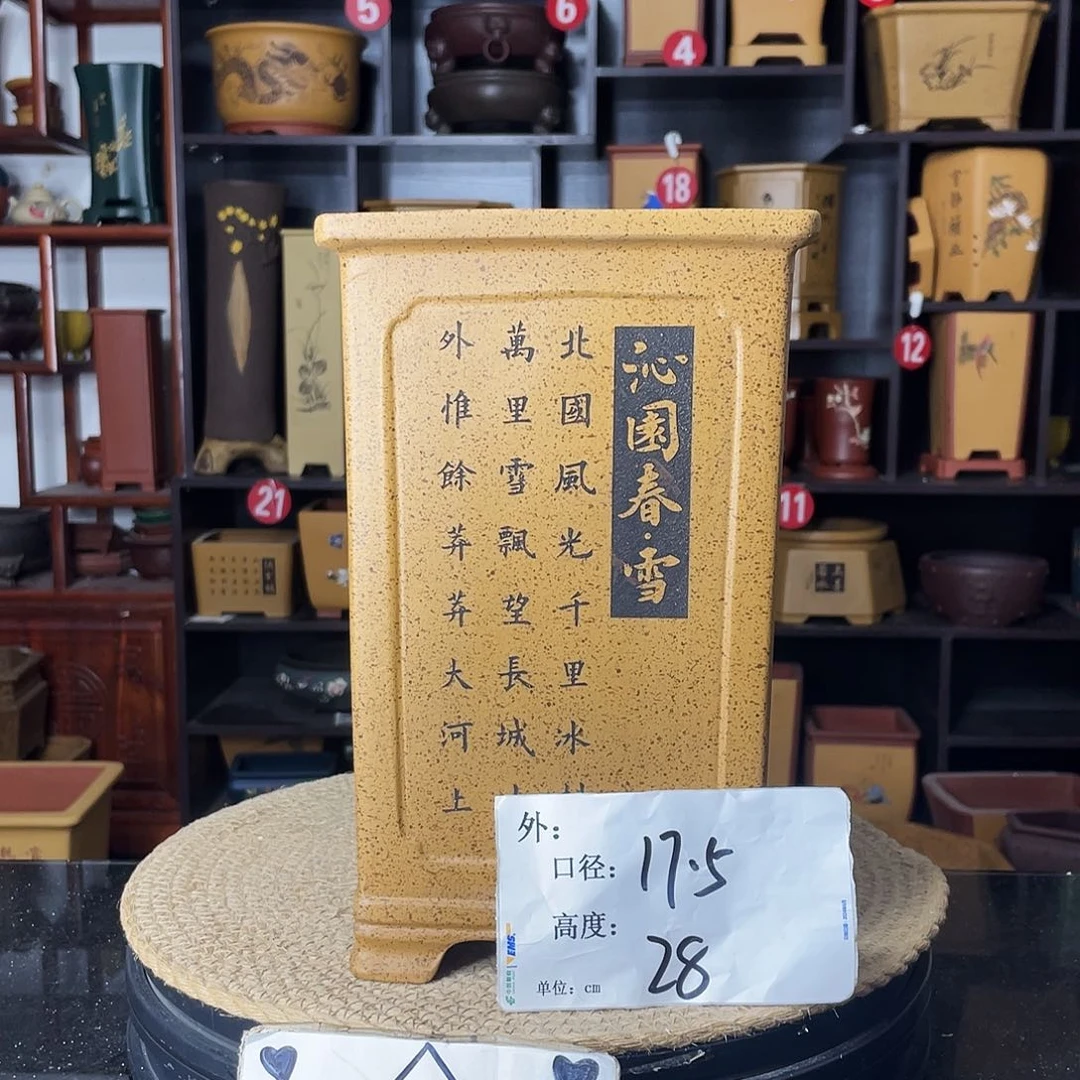 沁園春·雪
北國風光千里冰
萬里雪飄望長城
外惟餘莽莽大河上
外:
口径: 17.5
高度: 28
单位: cm
EMS
5
6
4
18
12
21
11